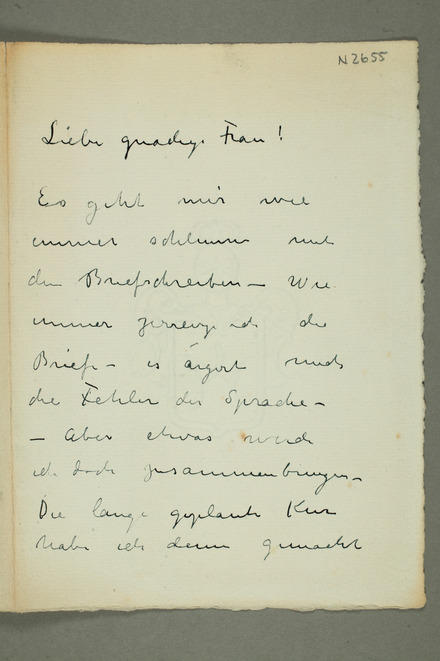 N2655
Liebe gnädige Frau!
Es geht mir wie
immer schlimm mit
dem Briefschreiben – Wie
immer zerreiße ich die
Briefe – es ärgert mich
die Fehler der Sprache –
– Aber etwas werde
ich doch zusammenbringen –
Die lange geplante Kur
habe ich denn gemacht